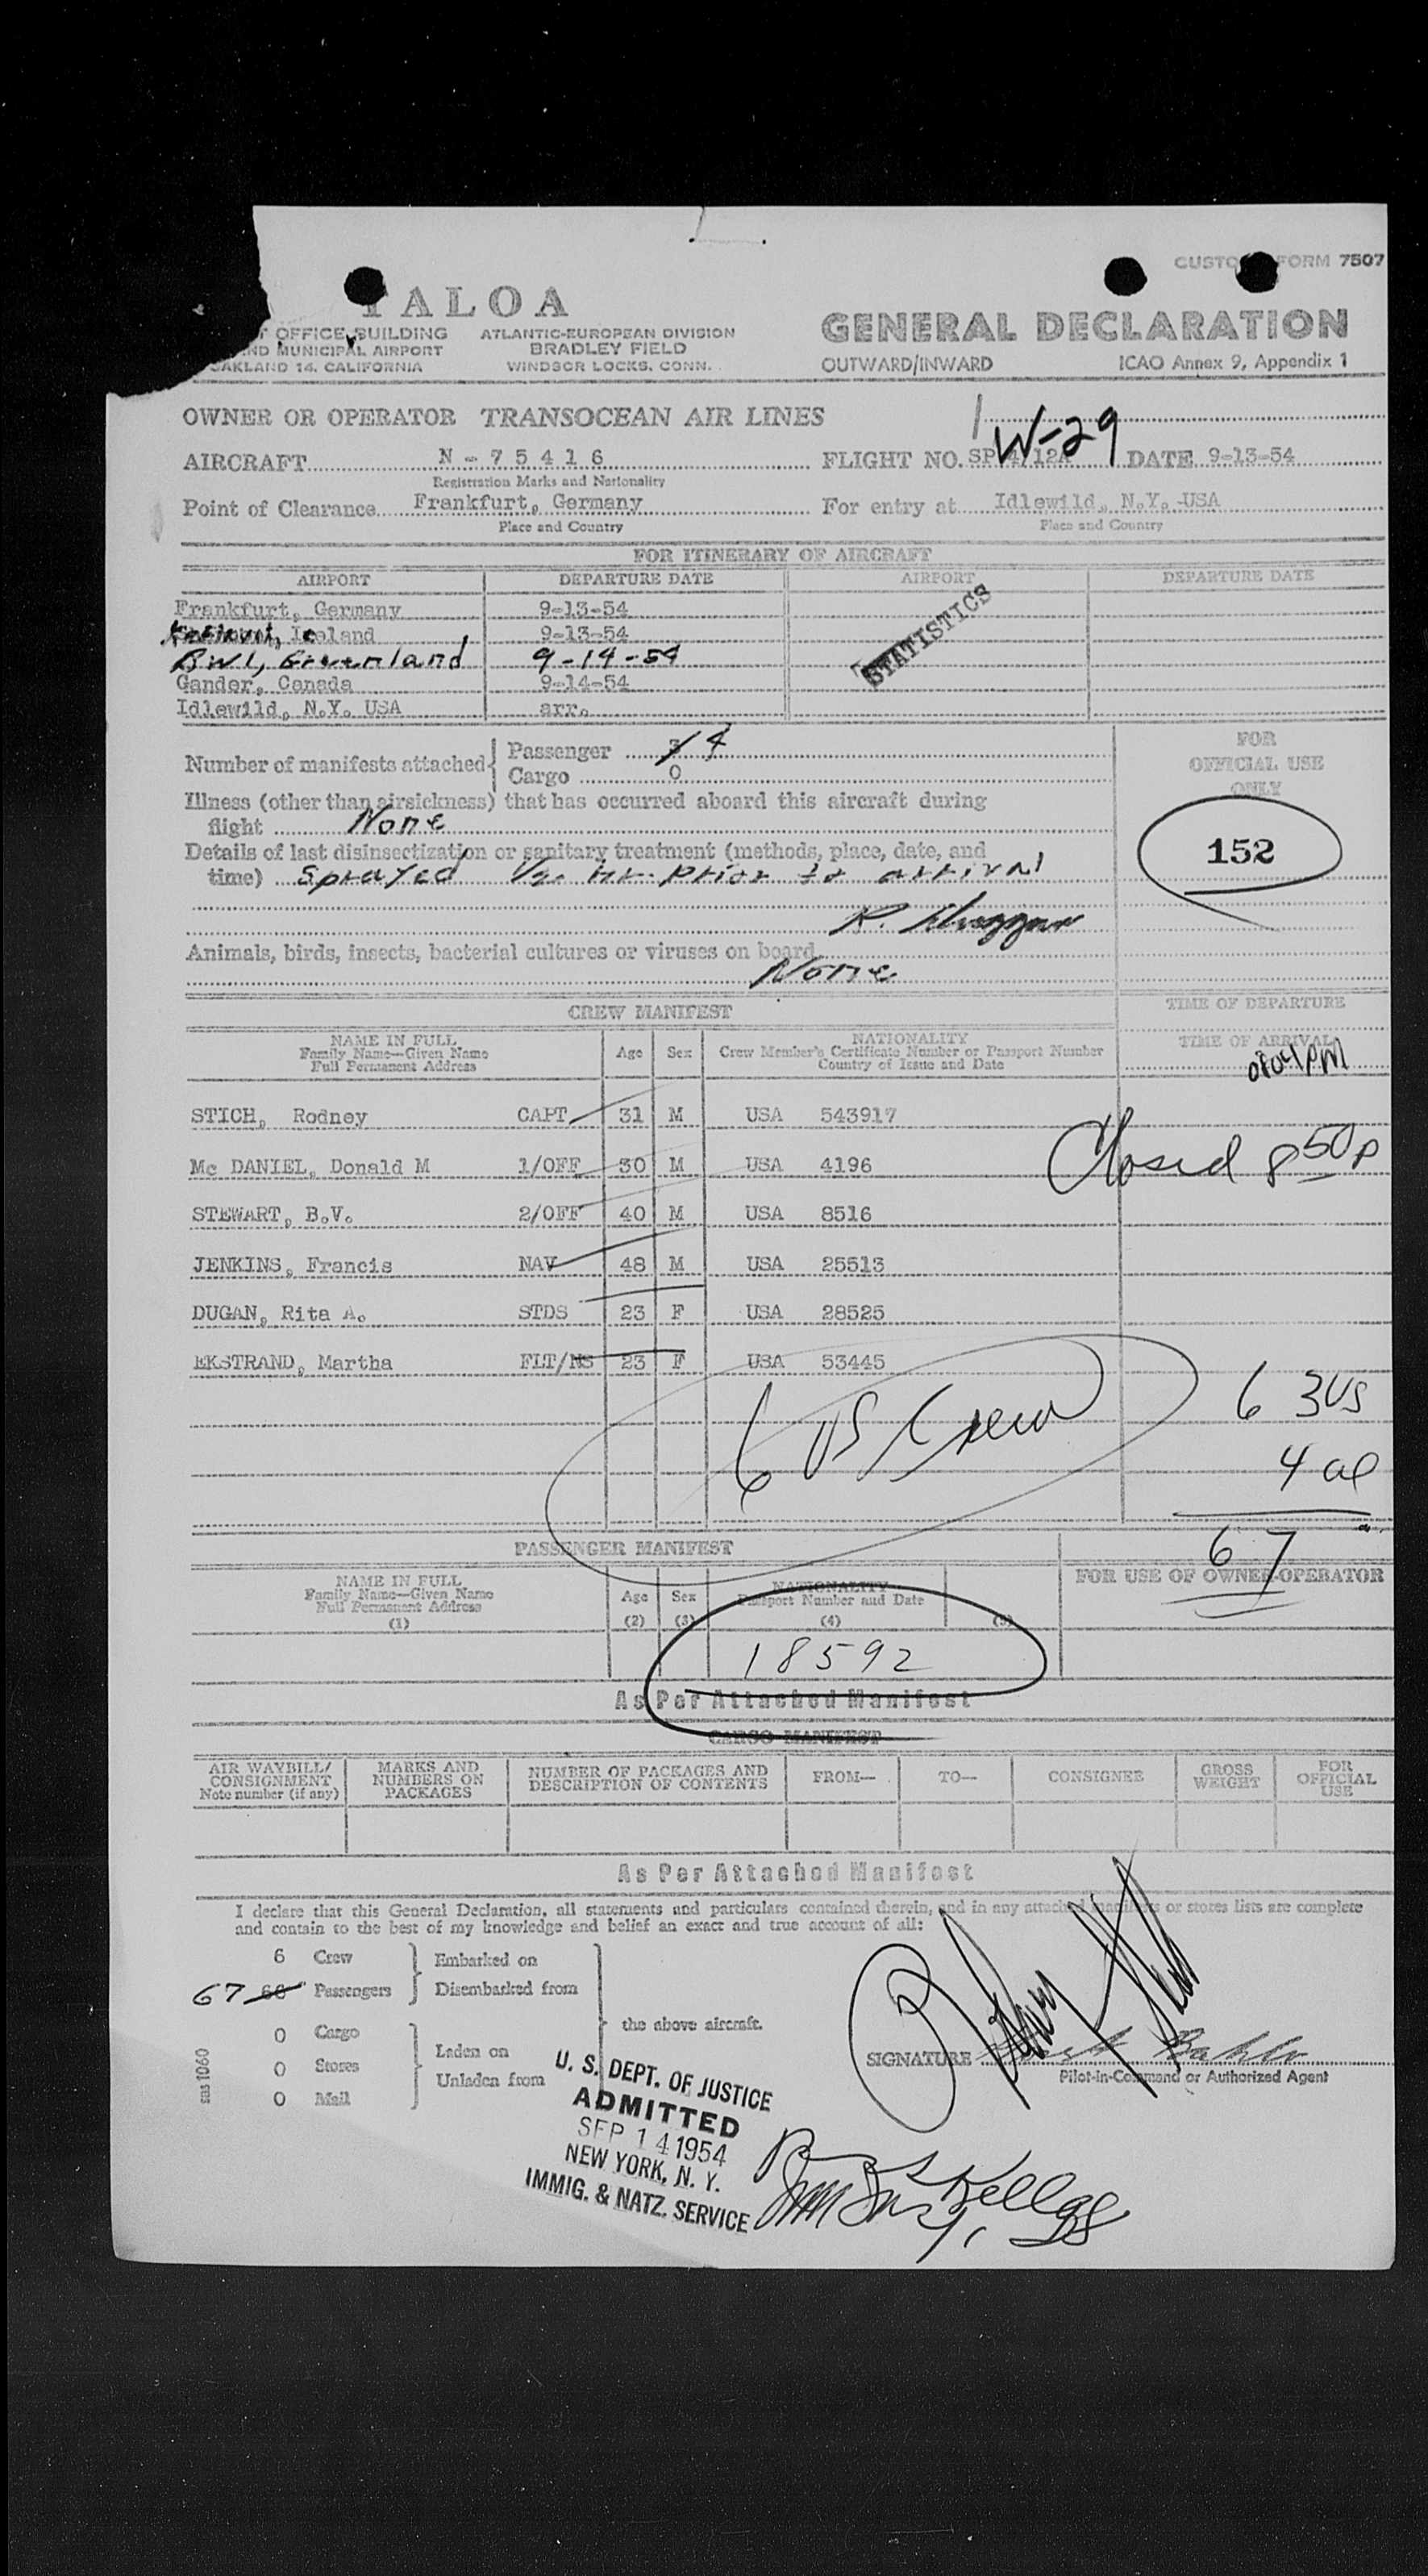 CUSTO FORM 7507
TALOA
OFFICE BUILDING ATLANTIC-EUROPEAN DIVISION
ND MUNICIPAL AIRPORT BRADLEY FIELD
OAKLAND 14, CALIFORNIA WINDSOR LOCKS, CONN.
GENERAL DECLARATION
OUTWARD/INWARD ICAO Annex 9, Appendix 1
OWNER OR OPERATOR TRANSOCEAN AIR LINES
W-29
AIRCRAFT N-75416 FLIGHT NO. DATE 9-13-54
Registration Marks and Nationality
Point of Clearance Frankfurt, Germany For entry at Idlewild, N.Y. USA
Place and Country Place and Country
FOR ITINERARY OF AIRCRAFT
AIRPORT DEPARTURE DATE AIRPORT DEPARTURE DATE
Frankfurt, Germany 9-13-54
Iceland 9-13-54
BW1, Greenland 9-14-54
Gander, Canada 9-14-54
Idlewild, N.Y. USA arr.
STATISTICS
Number of manifests attached Passenger 3 4
Cargo 0
FOR OFFICIAL USE ONLY
152
Illness (other than airsickness) that has occurred aboard this aircraft during
flight None
Details of last disinsectization or sanitary treatment (methods, place, date, and
time) Sprayed 1/2 hr. prior to arrival
R.
Animals, birds, insects, bacterial cultures or viruses on board
None
CREW MANIFEST
TIME OF DEPARTURE
TIME OF ARRIVAL
0804PM
NAME IN FULL Age Sex NATIONALITY
Family Name—Given Name Crew Member's Certificate Number or Passport Number
Full Permanent Address Country of Issue and Date
STICH, Rodney CAPT 31 M USA 543917
Closed 8 50 p
Mc DANIEL, Donald M 1/OFF 30 M USA 4196
STEWART, B.V. 2/OFF 40 M USA 8516
JENKINS, Francis NAV 48 M USA 25513
DUGAN, Rita A. STDS 23 F USA 28525
EKSTRAND, Martha FLT/NS 23 F USA 53445
6 US Crew
6 3 US
4 al
67
PASSENGER MANIFEST
FOR USE OF OWNER-OPERATOR
NAME IN FULL Age Sex NATIONALITY
Family Name—Given Name Passport Number and Date
Full Permanent Address
(1) (2) (3) (4) (5)
18592
As Per Attached Manifest
CARGO MANIFEST
AIR WAYBILL/ CONSIGNMENT Note number (if any) MARKS AND NUMBERS ON PACKAGES NUMBER OF PACKAGES AND DESCRIPTION OF CONTENTS FROM— TO— CONSIGNEE GROSS WEIGHT FOR OFFICIAL USE
As Per Attached Manifest
I declare that this General Declaration, all statements and particulars contained therein, and in any attached manifests or stores lists are complete
and contain to the best of my knowledge and belief an exact and true account of all:
6 Crew Embarked on
67 Passengers Disembarked from
the above aircraft.
0 Cargo Laden on
0 Stores Unladen from
0 Mail
sas 1060
SIGNATURE
Pilot-in-Command or Authorized Agent
U. S. DEPT. OF JUSTICE
ADMITTED
SEP 14 1954
NEW YORK, N. Y.
IMMIG. & NATZ. SERVICE